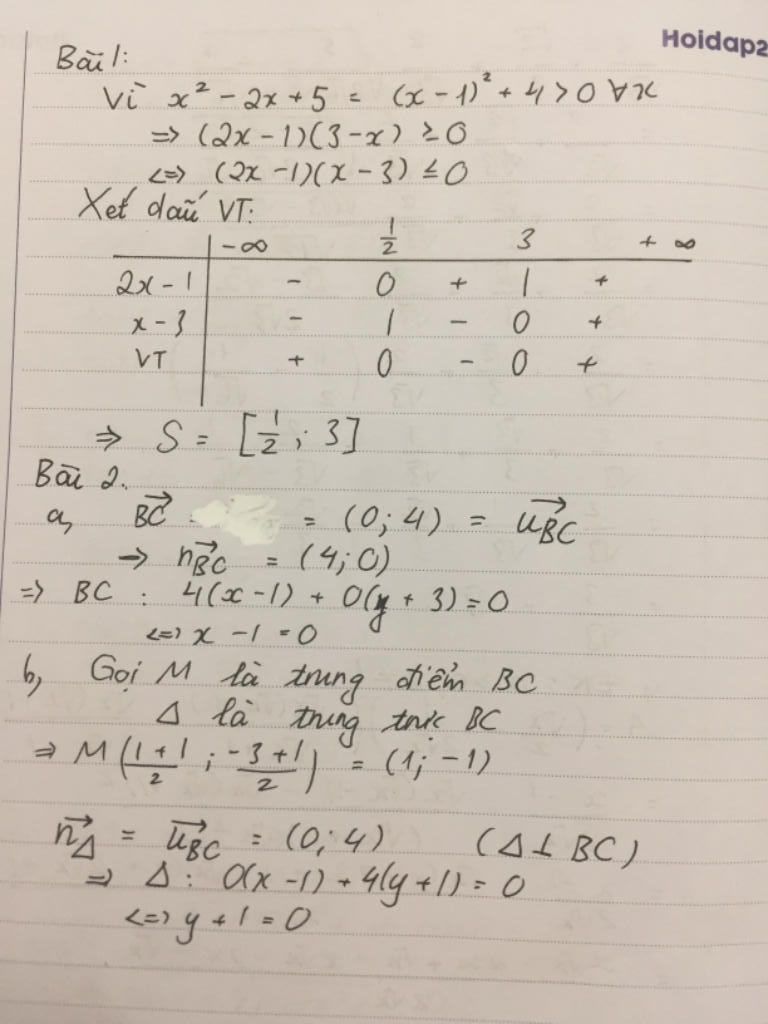 Hoidap2
Bài 1:
Vì x² - 2x + 5 = (x - 1)² + 4 > 0 ∀x
=> (2x - 1)(3 - x) ≥ 0
<=> (2x - 1)(x - 3) ≤ 0
Xét dấu VT:
-∞ 1/2 3 + ∞
2x - 1 - 0 + | +
x - 3 - | - 0 +
VT + 0 - 0 +
=> S = [1/2; 3]
Bài 2.
a, BC→ = (0; 4) = u→BC
-> n→BC = (4; 0)
=> BC : 4(x - 1) + 0(y + 3) = 0
<=> x - 1 = 0
b, Gọi M là trung điểm BC
Δ là trung trực BC
=> M((1 + 1)/2 ; (-3 + 1)/2) = (1; -1)
n→Δ = u→BC = (0; 4) (Δ ⊥ BC)
=> Δ : 0(x - 1) + 4(y + 1) = 0
<=> y + 1 = 0